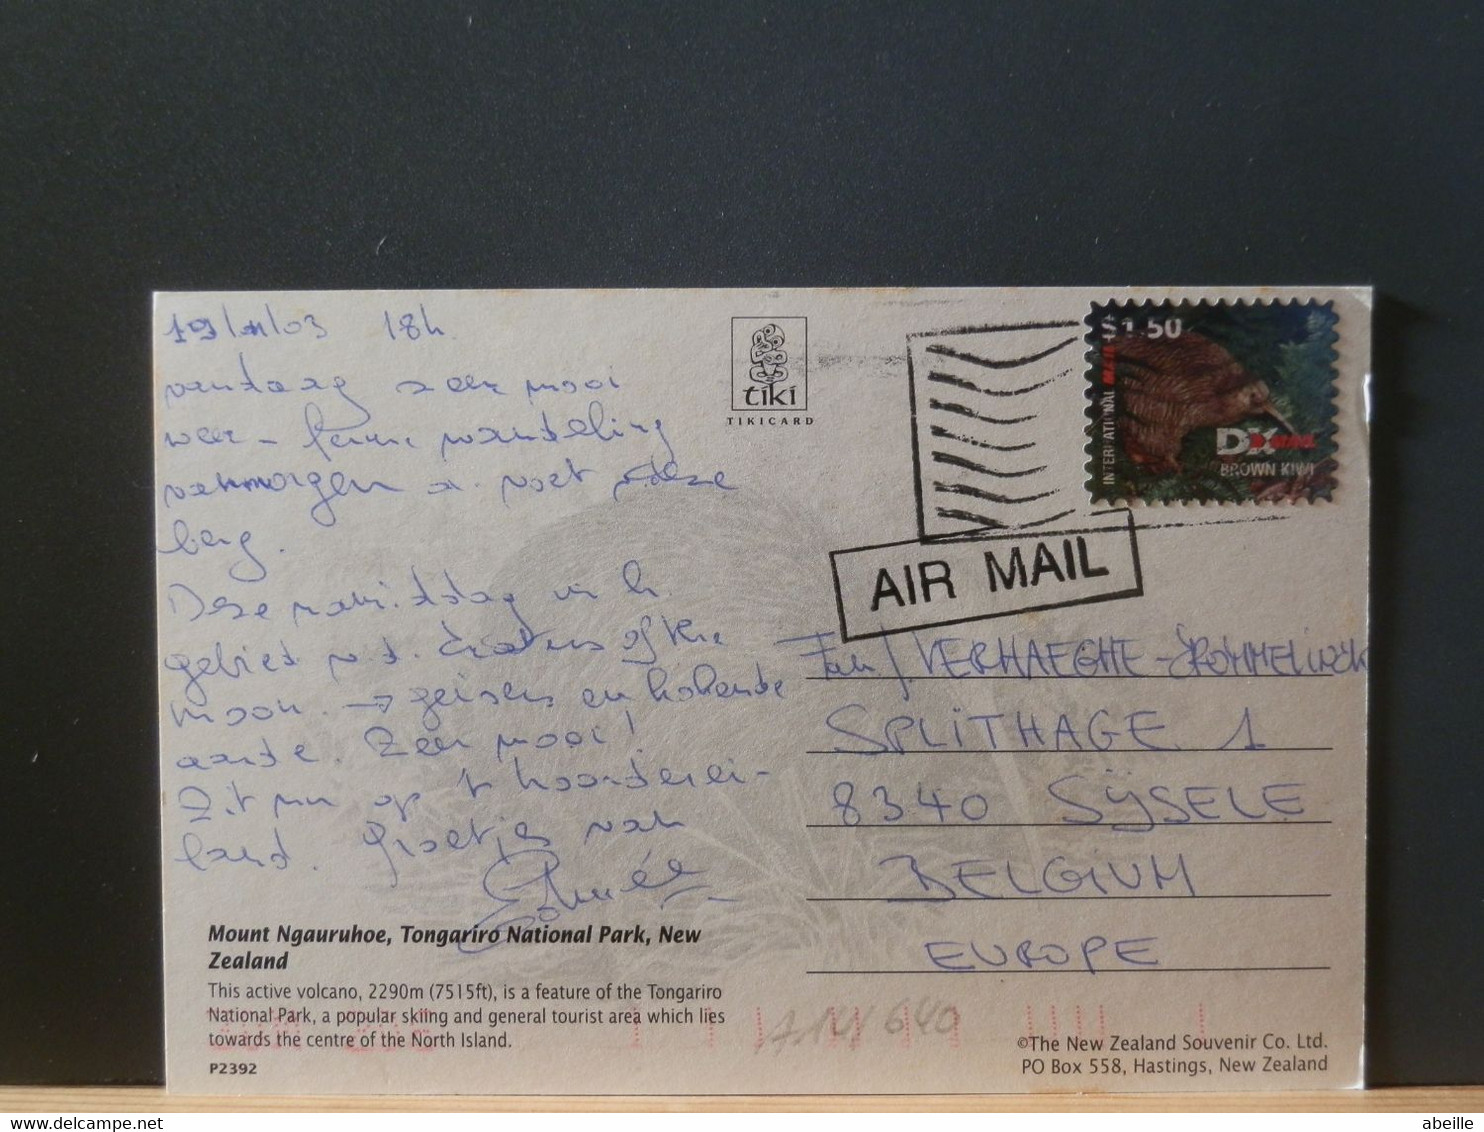 19/11/03 18h.
vandaag zeer mooi
weer - ferme wandeling
morgen voet deze
berg.
Deze namiddag in h.
gebied v.d. Craters of the
moon. → geisers en kokende
aarde. Zeer mooi!
Zit nu op 't Noorderei-
land. Groetjes van
Aimée
tiki
TIKICARD
$1.50
INTERNATIONAL MAIL
DX MAIL
BROWN KIWI
AIR MAIL
Fam. VERHAEGHE-
SPLITHAGE 1
8340 SIJSELE
BELGIUM
EUROPE
Mount Ngauruhoe, Tongariro National Park, New
Zealand
This active volcano, 2290m (7515ft), is a feature of the Tongariro
National Park, a popular skiing and general tourist area which lies
towards the centre of the North Island.
P2392
A14/640
©The New Zealand Souvenir Co. Ltd.
PO Box 558, Hastings, New Zealand
abeille